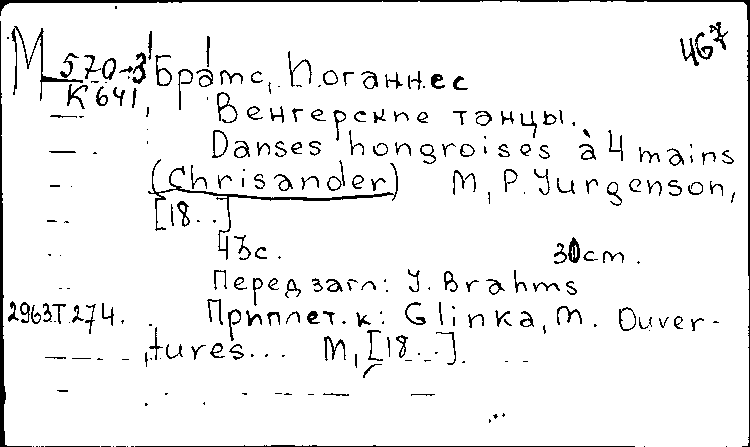 467
М 570-3 Брамс, Иоганнес
К 641
Венгерские танцы.
Danses hongroises à 4 mains
(Chrisander) М, P. Yurgenson,
[18..]
43с. 30cm.
Перед загл: J. Brahms
2963.Т274. Приплет. к: Glinka, M. Ouver-
tures... М, [18..].